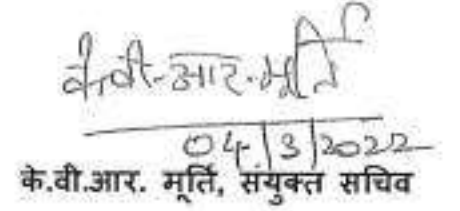 के.वी.आर.मूर्ति
04/3/2022
के.वी.आर. मूर्ति, संयुक्त सचिव